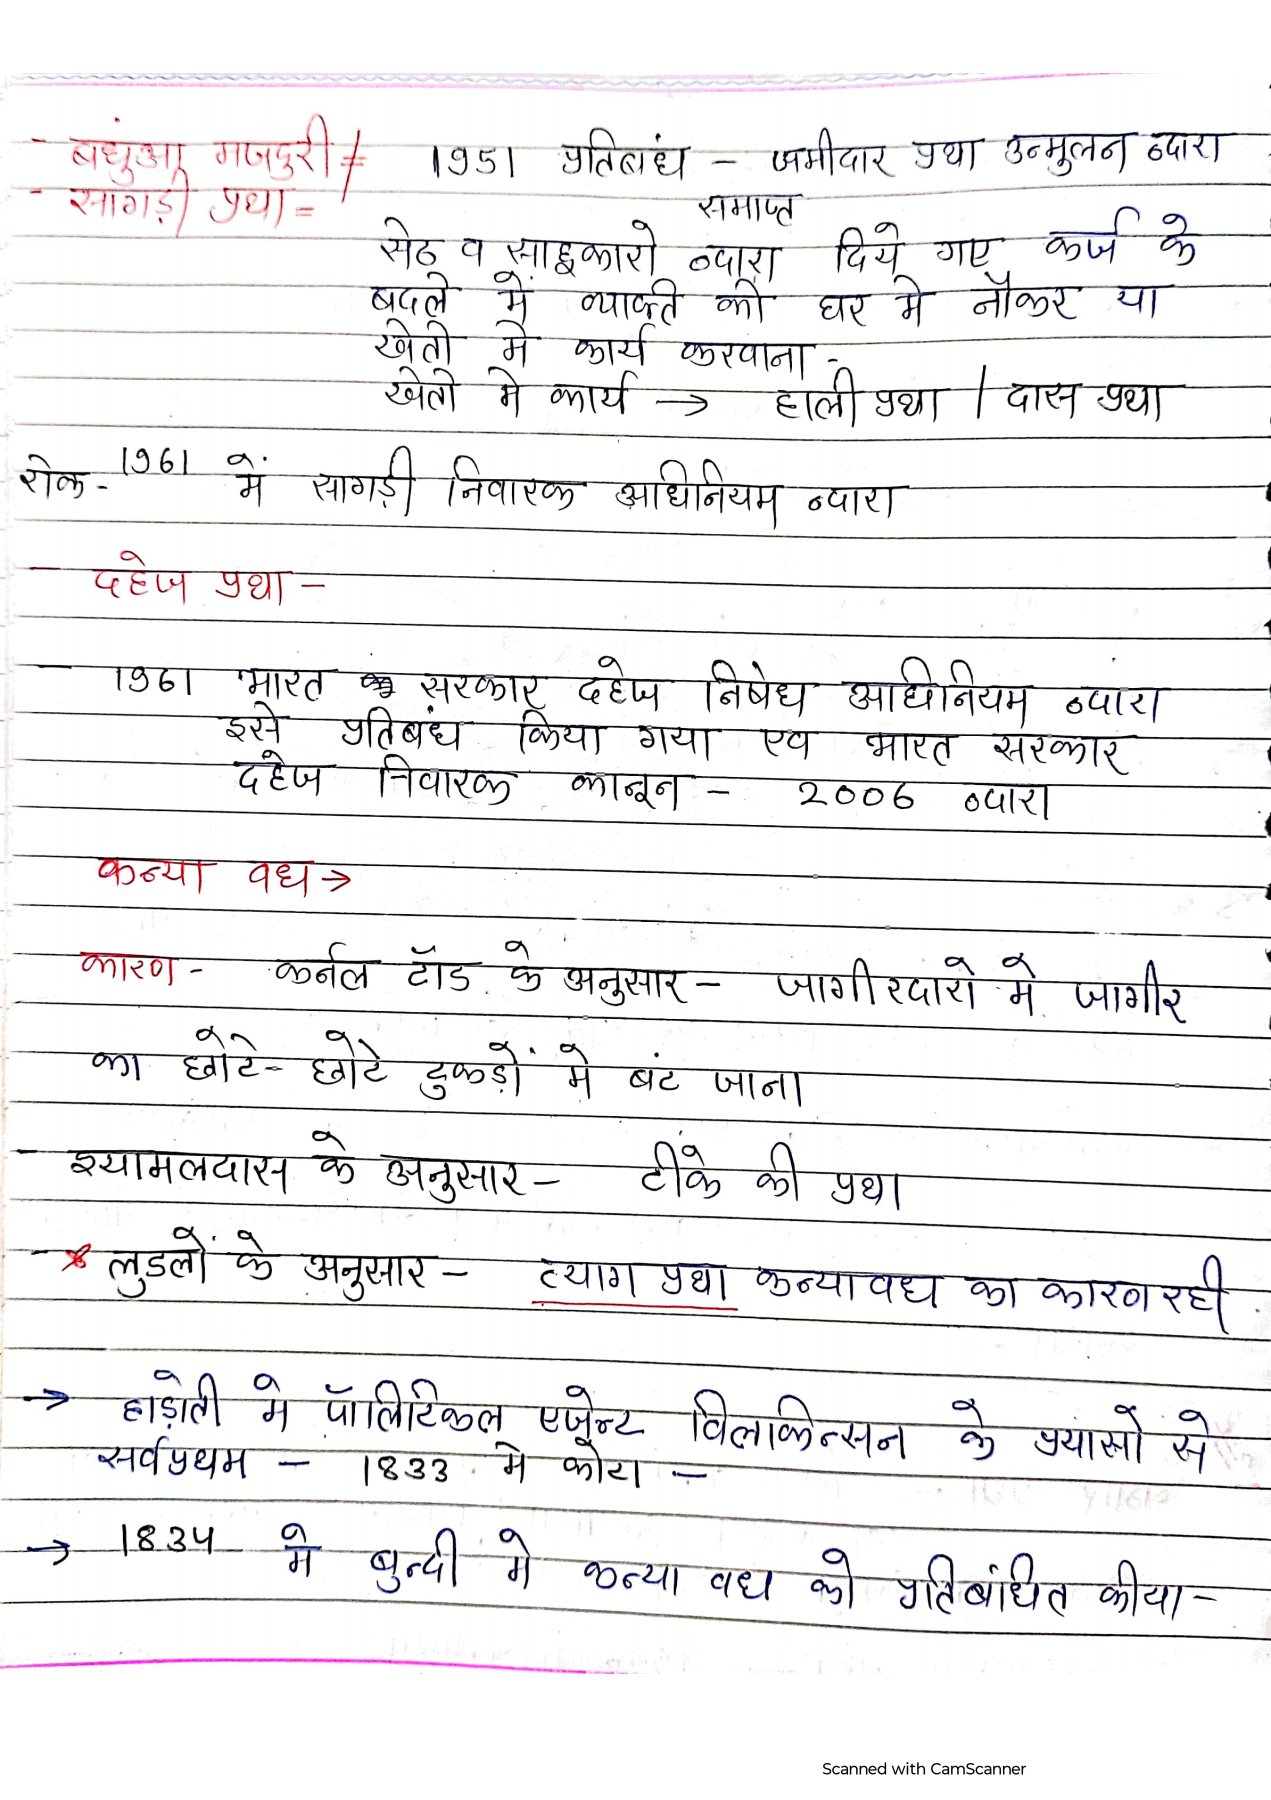 - बधुंआ मजदुरी = 1951 प्रतिबांध - जमीदार प्रथा उन्मुलन द्वारा
समाप्त
- सागड़ी प्रथा =
सेठ व साहूकारो द्वारा दिये गए कर्ज के
बदले में व्यक्ति को घर मे नौकर या
खेतो मे कार्य करवाना -
खेतो मे कार्य → हाली प्रथा / दास प्रथा
रोक - 1961 में सागड़ी निवारक अधिनियम द्वारा
दहेज प्रथा -
1961 भारत सरकार दहेज निषेध अधिनियम द्वारा
इसे प्रतिबंध किया गया एव भारत सरकार
दहेज निवारक कानून - 2006 द्वारा
कन्या वध →
कारण - कर्नल टॉड के अनुसार - जागीरदारो मे जागीर
का छोटे - छोटे टुकड़ों में बंट जाना
श्यामलदास के अनुसार - टीके की प्रथा
* लुडलों के अनुसार - त्याग प्रथा कन्यावध का कारण रही
→ हाड़ोती मे पॉलिटिकल एजेन्ट विलकिन्सन के प्रयासों से
सर्वप्रथम - 1833 मे कोटा -
→ 1834 मे बुन्दी मे कन्या वध को प्रतिबांधित कीया -
Scanned with CamScanner